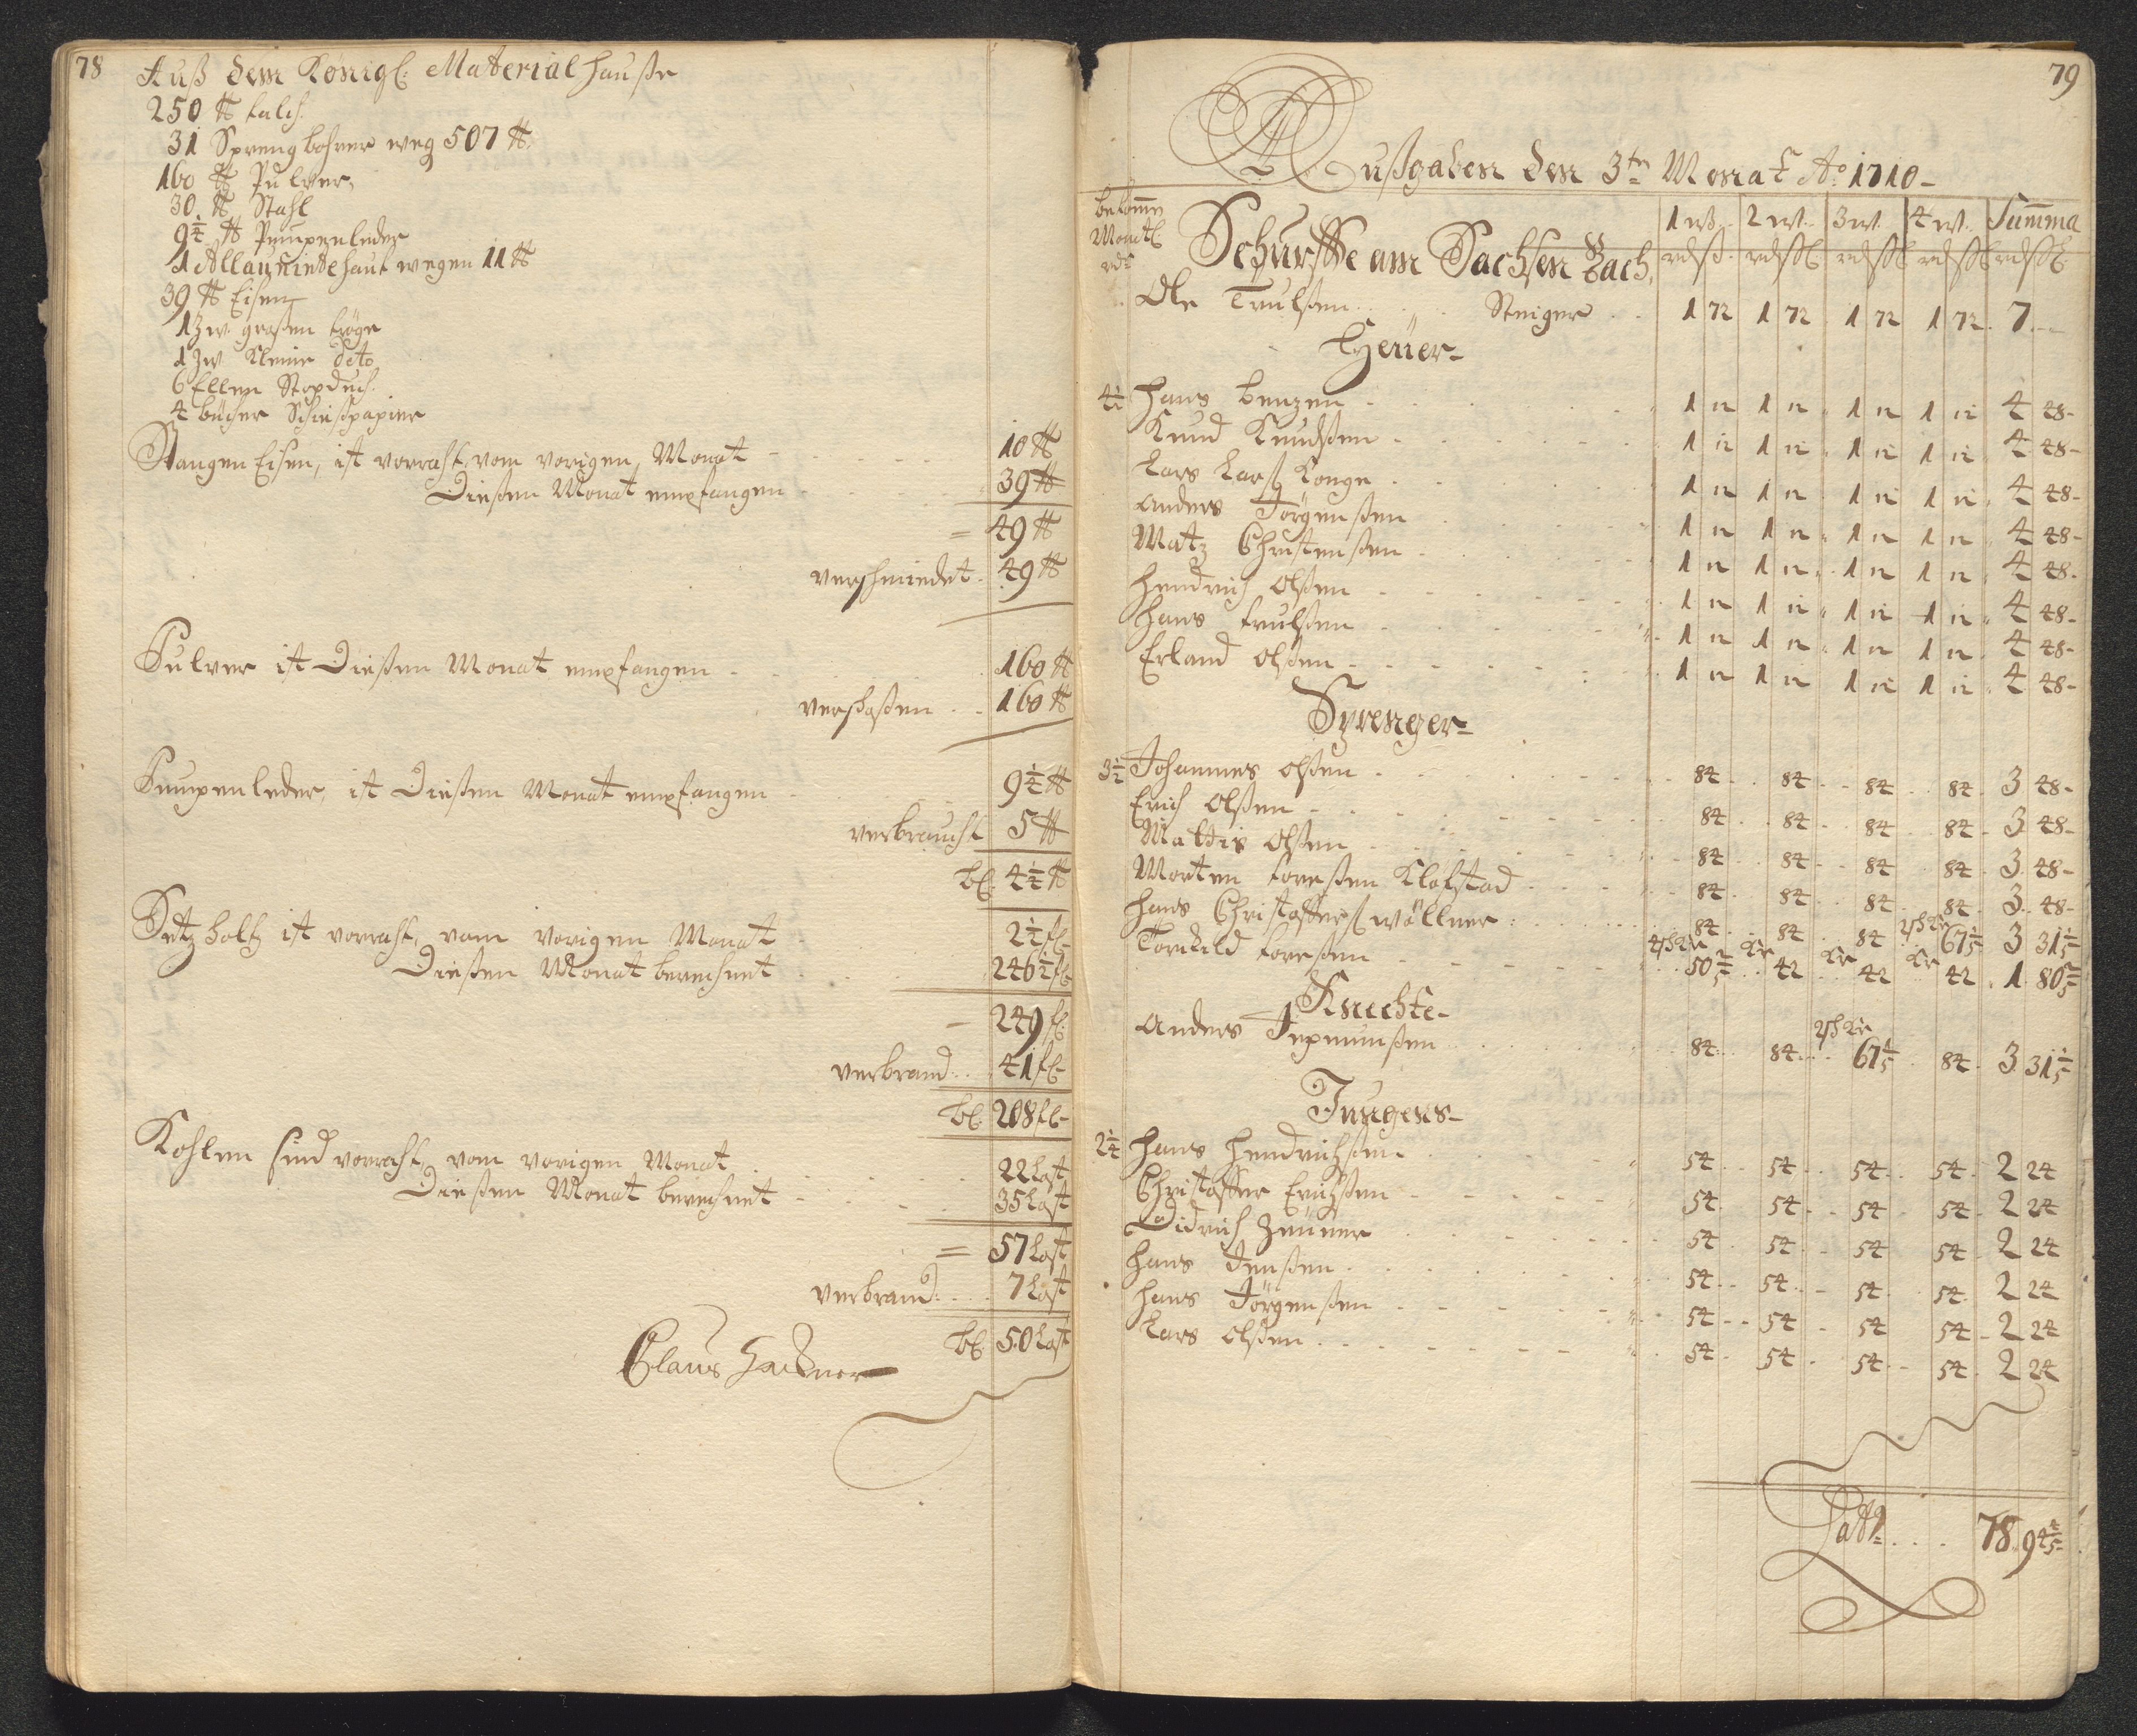 78
Auß dem Königl: Material hauße
250 ℔ talch.
31 Sprengbohrer weg 507 ℔.
160 ℔ Pulver,
30. ℔ Stahl
9 1/4 ℔ Pumpenleder
1 Allaunirte haut wegen 11 ℔
39 ℔ Eisen
1 Zw. großen tröge
1 Zw. Kleine dito
6 Ellen Stopduch.
4 bücher Schießpapier
Stangen Eisen, ist vorraht, vom vorigen Monat - 10 ℔
Dießen Monat empfangen 39 ℔
= 49 ℔
verschmiedet. 49 ℔
Pulver ist Dießen Monat empfangen 160 ℔
verschoßen 160 ℔
Pumpenleder, ist Dießen Monat empfangen 9 1/4 ℔
verbraucht 5 ℔
bl. 4 1/4 ℔
Setzholtz ist vorraht, vom vorigen Monat 2 1/2 fl-
Dießen Monat berechnet 246 1/2 fl-
= 249 fl.
verbrand: 41 fl-
bl. 208 fl-
Kohlen sind vorraht, vom vorigen Monat 22 Last
Dießen Monat berechnet 35 Last
= 57 Last
verbrand: 7 Last
bl. 50 Last
Claus
79
Außgaben den 3ten Monat Ao 1710-
bekomme
Monatl:
rdr
1 w. 2 w. 3 w. 4 w. Summa
Schurffe am Sachsen Bach,
rdß rdßl rdßl rdßl rdßl
Ole Trulßen Steiger 1 72 1 72 1 72 1 72 7.-
Heüer-
4 1/2 Hans Benzen 1 12 1 12 1 12 1 12 4 48-
Knud Knudßen 1 12 1 12 1 12 1 12 4 48-
Lars Larß Konge 1 12 1 12 1 12 1 12 4 48-
Anders Jörgenßen 1 12 1 12 1 12 1 12 4 48-
Matz Christenßen 1 12 1 12 1 12 1 12 4 48-
Hendrich Olßen 1 12 1 12 1 12 1 12 4 48-
Hans Trulßen 1 12 1 12 1 12 1 12 4 48-
Erland Olßen 1 12 1 12 1 12 1 12 4 48-
Sprenger-
3 1/2 Johannes Olßen 84 84 84 84 3 48-
Erich Olßen 84 84 84 84 3 48-
Mattis Olßen 84 84 84 84 3 48-
Morten Toreßen Klofstad 84 84 84 84 3 48-
Hans Christofferß Wöllner 84 84 84 67 1/5 3 31 1/5
Torckild Toreßen 50 2/5 42 42 42 1 80 2/5
Knechte-
Anders Jepmunßen 84 84 67 1/5 84 3 31 1/5
Jungens-
2 1/4 Hans Hendrichßen 54 54 54 54 2 24
Christoffer Erichßen 54 54 54 54 2 24
Didrich Zeüner 54 54 54 54 2 24
Hans Jenßen 54 54 54 54 2 24
Hans Jörgenßen 54 54 54 54 2 24
Lars Olßen 54 54 54 54 2 24
Latt: 78. 94 4/5